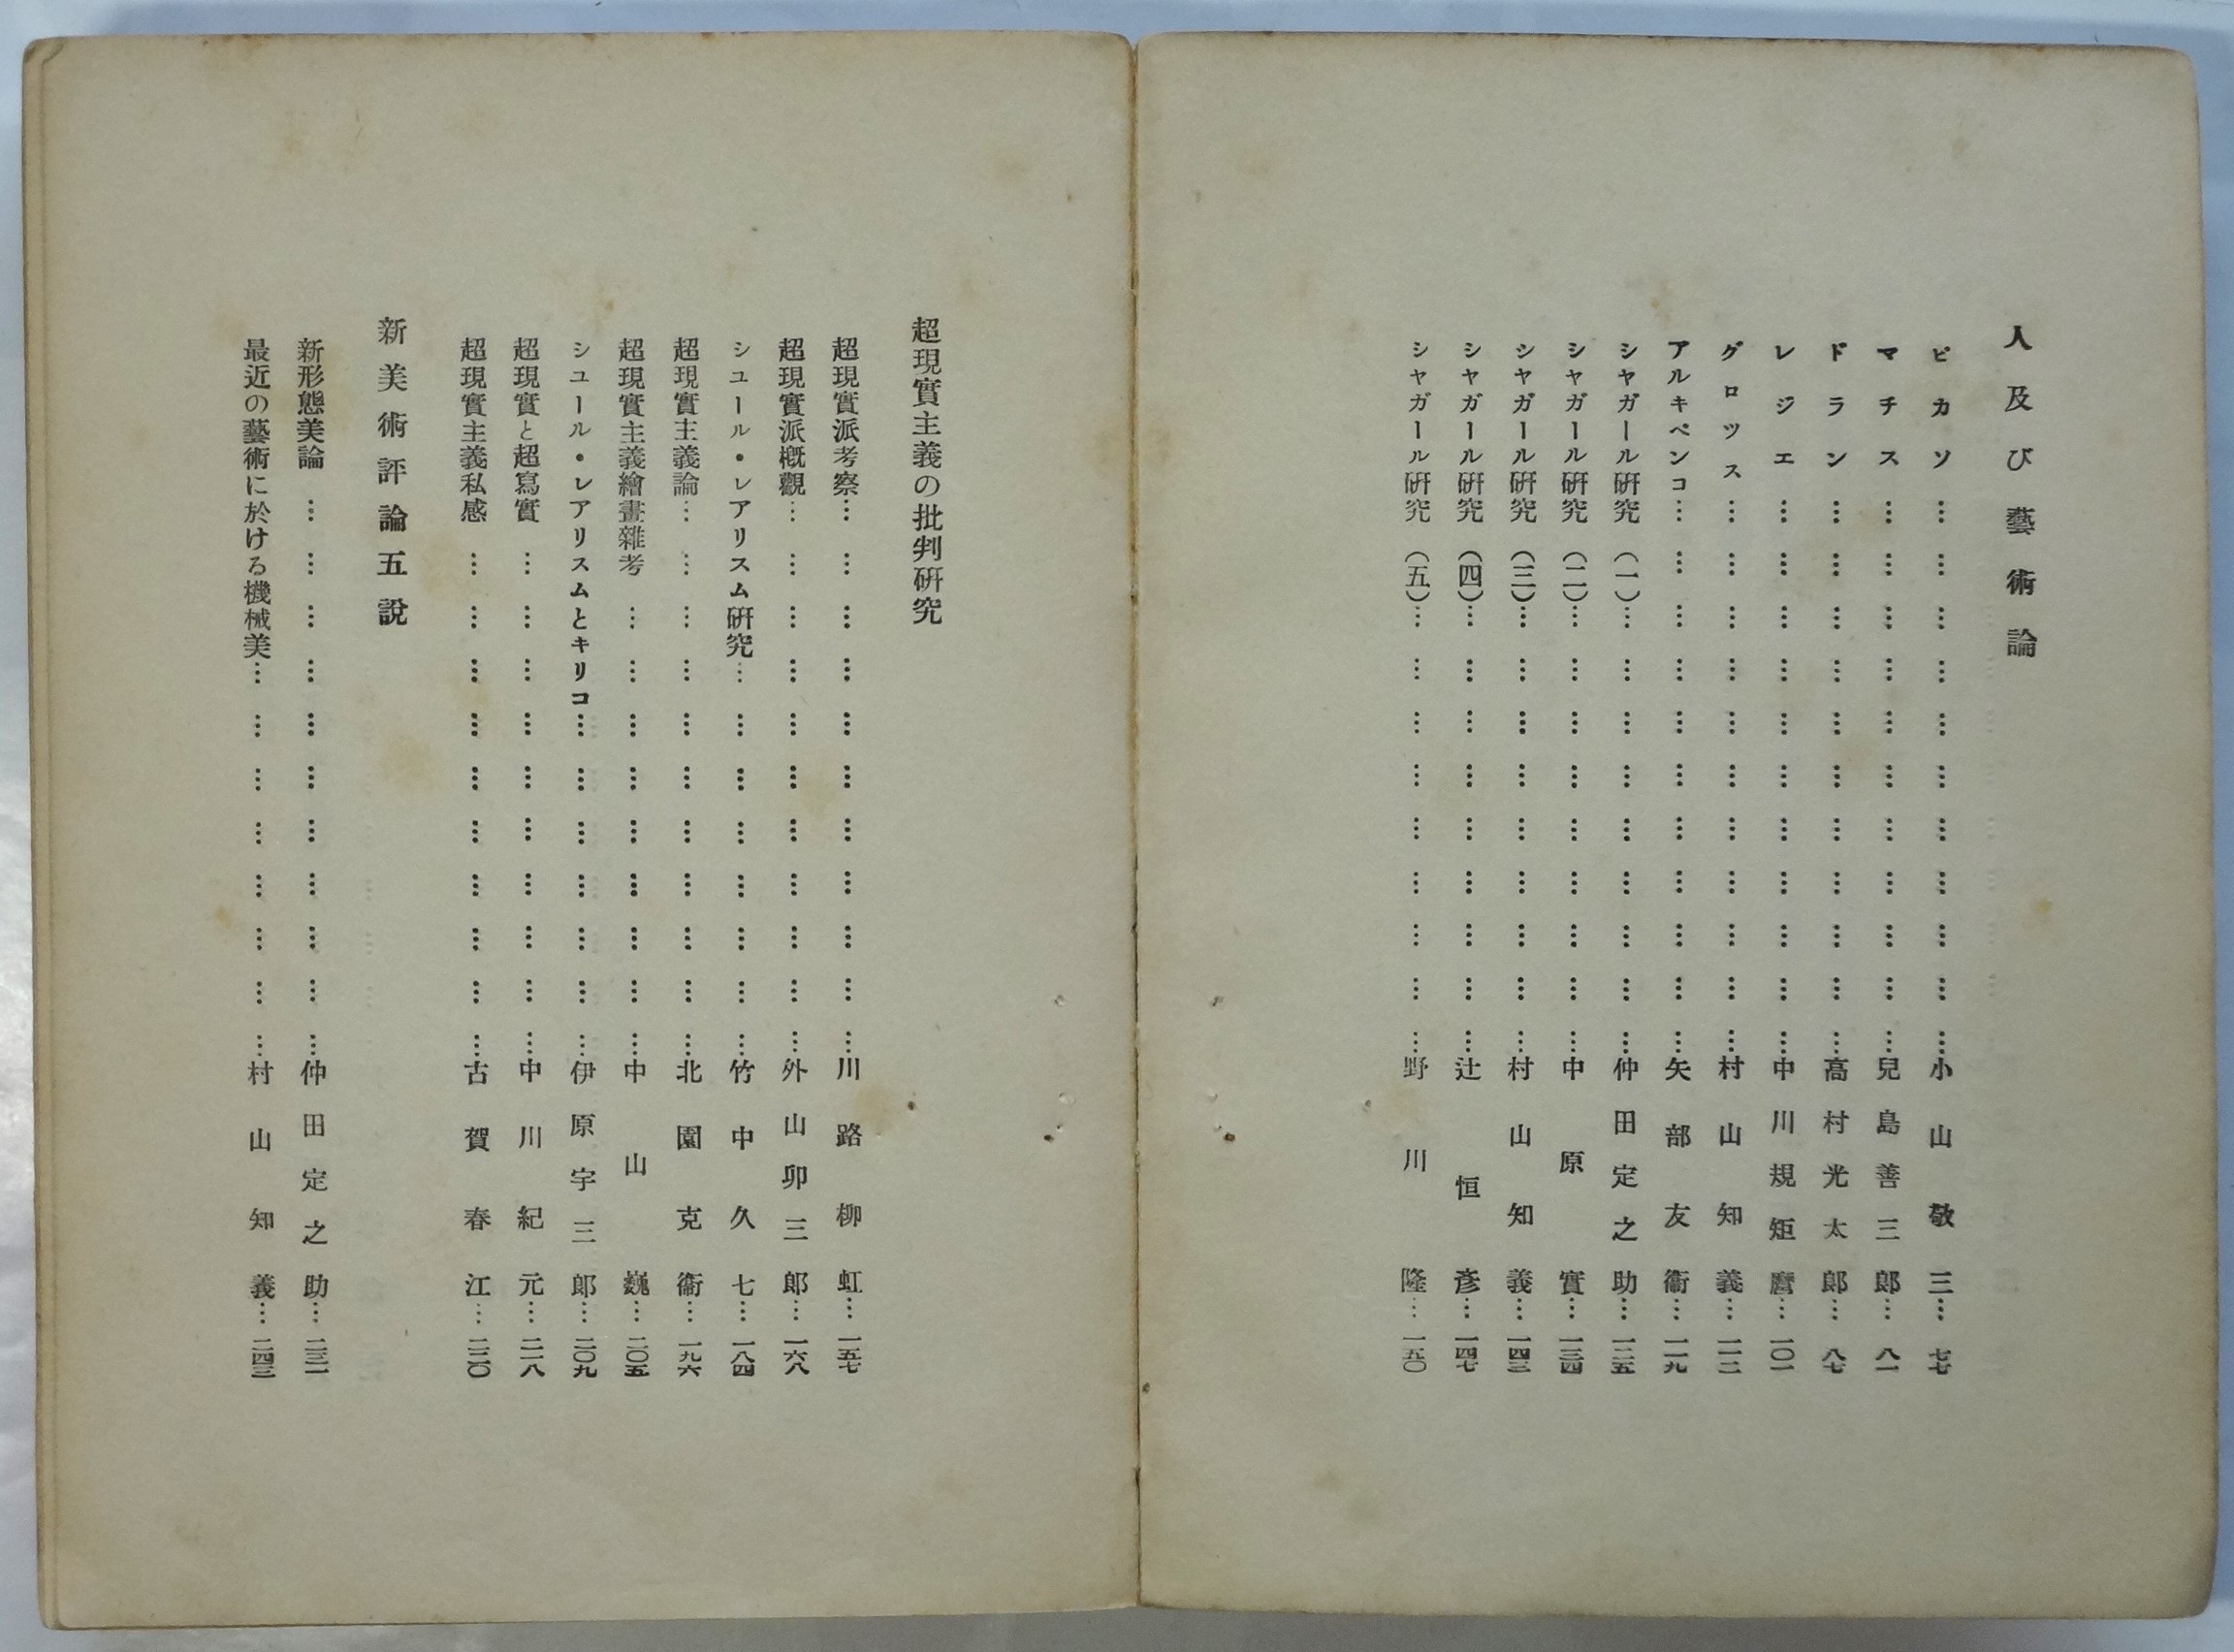 人及び藝術論
ピカソ……………………………小山敬三…七七
マチス……………………………兒島善三郎…八一
ドラン……………………………高村光太郎…八七
レジエ……………………………中川規矩麿…一〇一
グロツス……………………………村山知義…一一二
アルキペンコ……………………………矢部友衞…一一九
シヤガール研究(一)…………………………仲田定之助…一二五
シヤガール研究(二)…………………………中原實…一三四
シヤガール研究(三)…………………………村山知義…一四三
シヤガール研究(四)…………………………辻恒彥…一四七
シヤガール研究(五)…………………………野川隆…一五〇
超現實主義の批判研究
超現實派考察……………………………川路柳虹…一五七
超現實派槪觀……………………………外山卯三郎…一六八
シユール・レアリスム研究………………………竹中久七…一八四
超現實主義論……………………………北園克衞…一九六
超現實主義繪畫雜考…………………………中山巍…二〇五
シユール・レアリスムとキリコ……………………伊原宇三郎…二〇九
超現實と超寫實……………………………中川紀元…二一八
超現實主義私感……………………………古賀春江…二二〇
新美術評論五說
新形態美論……………………………仲田定之助…二三一
最近の藝術に於ける機械美………………………村山知義…二四三